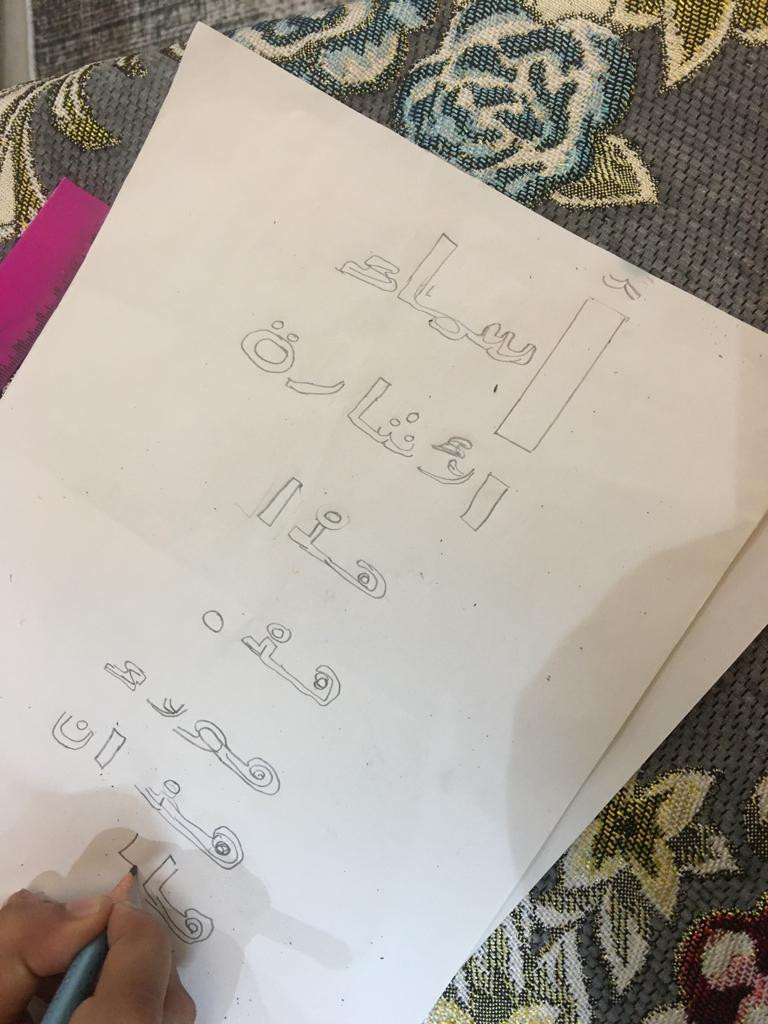 أسماء
الأشارة
هذا
هذه
هؤلاء
هذان